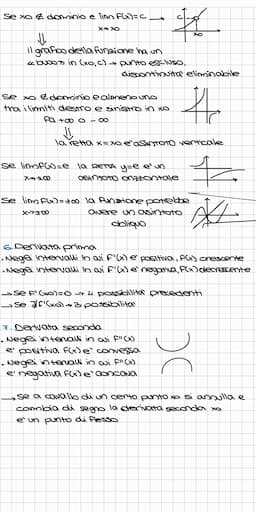 Se x0 ∉ dominio e lim F(x)=c →
x→x0
⇓
il grafico della funzione ha un
"buco" in (x0,c) → punto escluso,
discontinuità eliminabile
Se x0 ∉ dominio e almeno uno
tra i limiti destro e sinistro in x0
fa +∞ o -∞
⇓
la retta x=x0 è asintoto verticale
Se lim F(x)=e la retta y=e è un
x→±∞ asintoto orizzontale
Se lim F(x)=±∞ la funzione potrebbe
x→±∞ avere un asintoto
obliquo
6. Derivata prima
.Negli intervalli in cui F'(x) è positiva, F(x) crescente
.Negli intervalli in cui F'(x) è negativa, F(x) decrescente
→ Se F'(x0)=0 → 4 possibilità precedenti
→ Se ∄ F'(x0) → 3 possibilità
7. Derivata seconda
. Negli intervalli in cui F"(x)
è positiva F(x) è convessa
. Negli intervalli in cui F"(x)
è negativa F(x) è concava
→ se a cavallo di un certo punto x0 si annulla e
cambia di segno la derivata seconda x0
è un punto di flesso